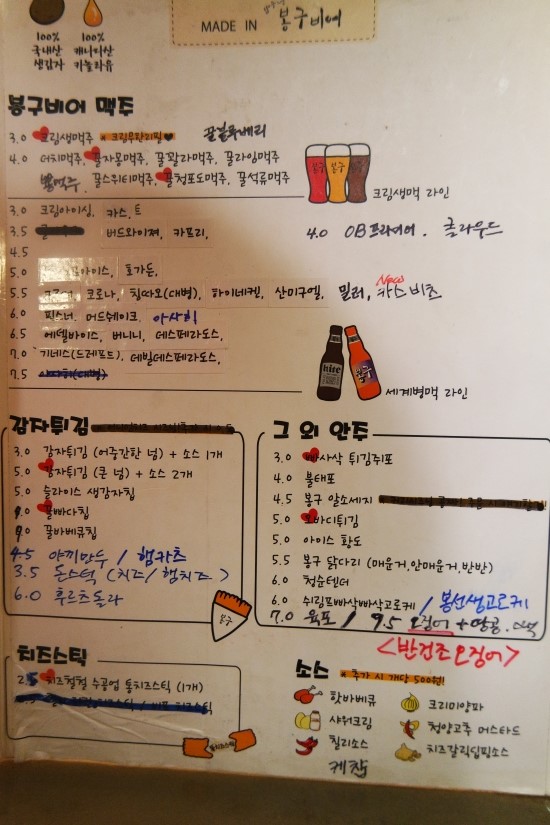 MADE IN 봉구비어
100% 국내산 생감자
100% 캐나다산 카놀라유
봉구비어 맥주
3.0 크림생맥주 꿀블루베리
4.0 더치맥주, 꿀자몽맥주, 꿀꽐라맥주, 꿀라임맥주
꿀스위티맥주, 꿀청포도맥주, 꿀석류맥주
크림생맥주 라인
3.0 크림아이싱, 카스,
3.5 버드와이져, 카프리, 4.0 OB프리미어. 클라우드
4.5
5.0 아이스, 호가든,
5.5 코로나, 칭따오(대병), 하이네켄, 산미구엘, 밀러, New 카스비츠
6.0 필스너, 머드쉐이크, 아사히
6.5 에델바이스, 버니니, 데스페라도스,
7.0 기네스(드래프트), 데빌데스페라도스,
7.5
hite
봉구
세계병맥 라인
감자튀김
3.0 감자튀김 (어중간한 넘) + 소스 1개
5.0 감자튀김 (큰 넘) + 소스 2개
5.0 슬라이스 생감자칩
꿀빠다칩
꿀바베큐칩
4.5 야끼만두 / 햄카츠
3.5 돈스틱 (치즈/햄치즈)
6.0 후르츠폴라
봉구
그 외 안주
3.0 빠사삭 튀김쥐포
4.0 불태포
4.5 봉구 알소세지
5.0 오바디튀김
5.0 아이스 황도
5.5 봉구 닭다리 (매운거,안매운거,반반)
6.0 청순텐더
6.0 쉬림프빠삭빠삭고로케 / 봉선생고로케
7.0 육포 / 9.5 오징어 + 땅콩.
<반건조 오징어>
치즈스틱
치즈철철 수공업 통치즈스틱 (1개)
치즈스틱
소스 * 추가 시 개당 500원!
핫바베큐 크리미양파
샤워크림 청양고추 머스타드
칠리소스 치즈갈릭딥핑소스
케찹